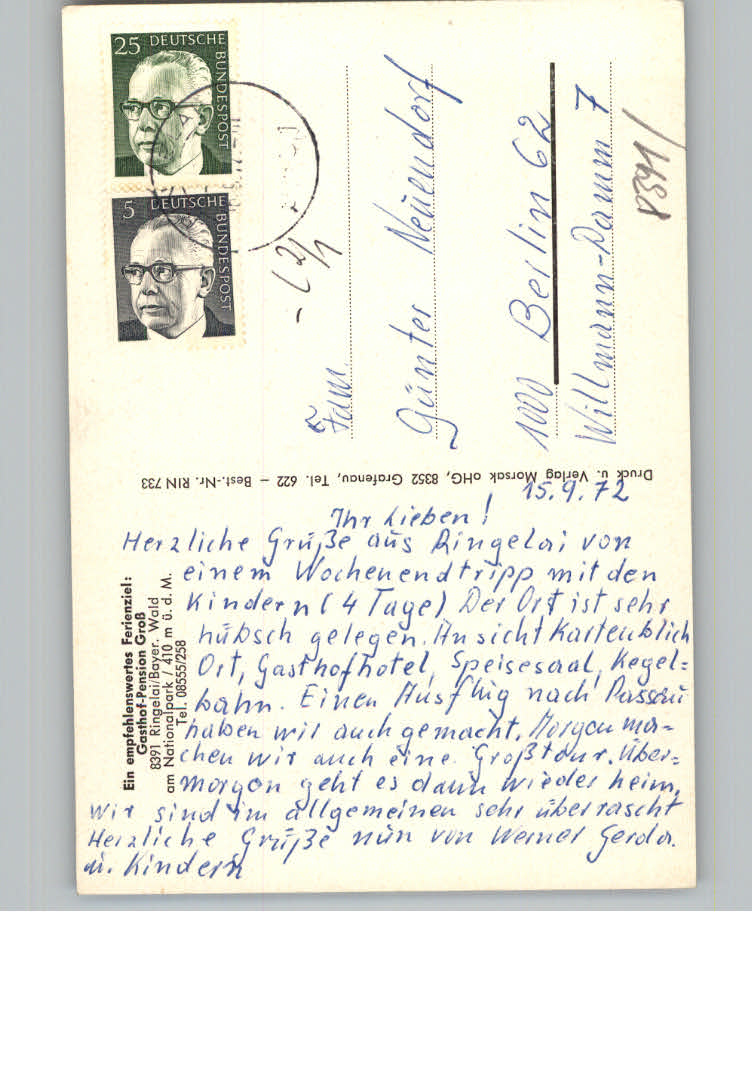 25 DEUTSCHE BUNDESPOST
5 DEUTSCHE BUNDESPOST
Fam.
Günter Neuendorf
1000 Berlin 62
Willmann-Damm 7
Druck u. Verlag Morsak oHG, 8352 Grafenau, Tel. 622 – Best.-Nr. RIN 733
Ein empfehlenswertes Ferienziel:
Gasthof-Pension Groß
8391 Ringelai/Bayer. Wald
am Nationalpark / 410 m ü. d. M.
Tel. 08555/258
15.9.72
Ihr Lieben!
Herzliche Grüße aus Ringelai von
einem Wochenendtripp mit den
Kindern (4 Tage) Der Ort ist sehr
hübsch gelegen. Ansicht Kartenblich
Ort, Gasthofhotel, Speisesaal, Kegel=
bahn. Einen Ausflug nach Passau
haben wir auch gemacht. Morgen ma-
chen wir auch eine Großtour. Über=
morgen geht es dann wieder heim.
Wir sind im allgemeinen sehr überrascht
Herzliche Grüße nun von Werner Gerda.
u. Kindern